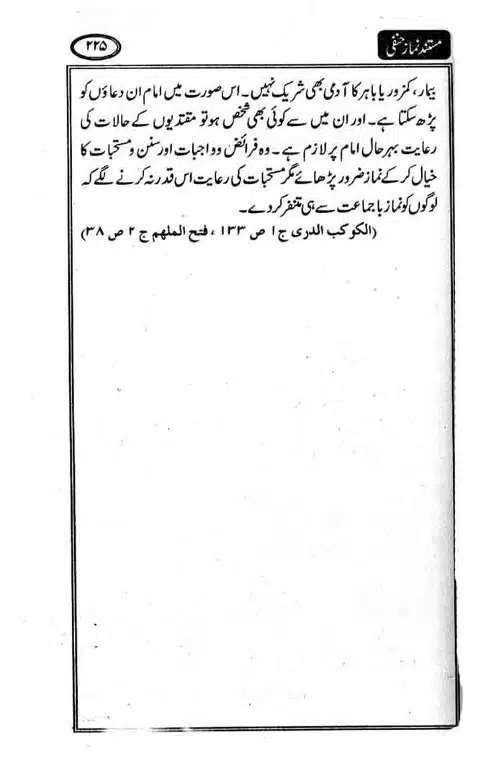 مستند نماز حنفی
۲۲۵
بیمار، کمزور یا باہر کا آدمی بھی شریک نہیں۔ اس صورت میں امام ان دعاؤں کو
پڑھ سکتا ہے۔ اور ان میں سے کوئی بھی شخص ہو تو مقتدیوں کے حالات کی
رعایت بہر حال امام پر لازم ہے۔ وہ فرائض و واجبات اور سنن و مستحبات کا
خیال کر کے نماز ضرور پڑھائے مگر مستحبات کی رعایت اس قدر نہ کرنے لگے کہ
لوگوں کو نماز باجماعت سے ہی متنفر کر دے۔
(الکوکب الدری ج ۱ ص ۱۳۳ ، فتح الملھم ج ۲ ص ۳۸)